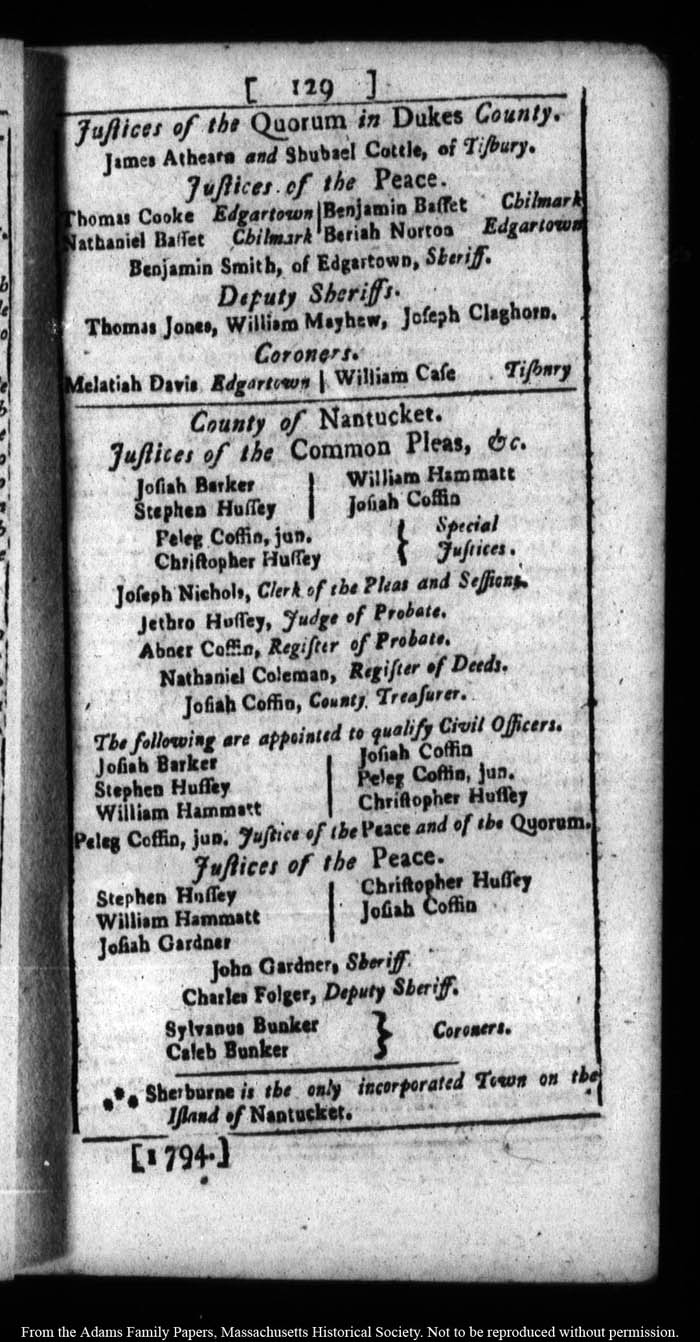 [ 129 ]
Juſtices of the Quorum in Dukes County.
James Athearn and Shubael Cottle, of Tiſbury.
Juſtices of the Peace.
Thomas Cooke Edgartown | Benjamin Baſſet Chilmark
Nathaniel Baſſet Chilmark | Beriah Norton Edgartown
Benjamin Smith, of Edgartown, Sheriff.
Deputy Sheriffs.
Thomas Jones, William Mayhew, Joſeph Claghorn.
Coroners.
Melatiah Davis Edgartown | William Caſe Tiſbury
County of Nantucket.
Juſtices of the Common Pleas, &c.
Joſiah Barker | William Hammatt
Stephen Huſſey | Joſiah Coffin
Peleg Coffin, jun. { Special
Chriſtopher Huſſey { Juſtices.
Joſeph Nichols, Clerk of the Pleas and Seſſions.
Jethro Huſſey, Judge of Probate.
Abner Coffin, Regiſter of Probate.
Nathaniel Coleman, Regiſter of Deeds.
Joſiah Coffin, County Treaſurer.
The following are appointed to qualify Civil Officers.
Joſiah Barker | Joſiah Coffin
Stephen Huſſey | Peleg Coffin, jun.
William Hammatt | Chriſtopher Huſſey
Peleg Coffin, jun. Juſtice of the Peace and of the Quorum.
Juſtices of the Peace.
Stephen Huſſey | Chriſtopher Huſſey
William Hammatt | Joſiah Coffin
Joſiah Gardner
John Gardner, Sheriff.
Charles Folger, Deputy Sheriff.
Sylvanus Bunker } Coroners.
Caleb Bunker
*** Sherburne is the only incorporated Town on the
Iſland of Nantucket.
[1794.]
From the Adams Family Papers, Massachusetts Historical Society. Not to be reproduced without permission.